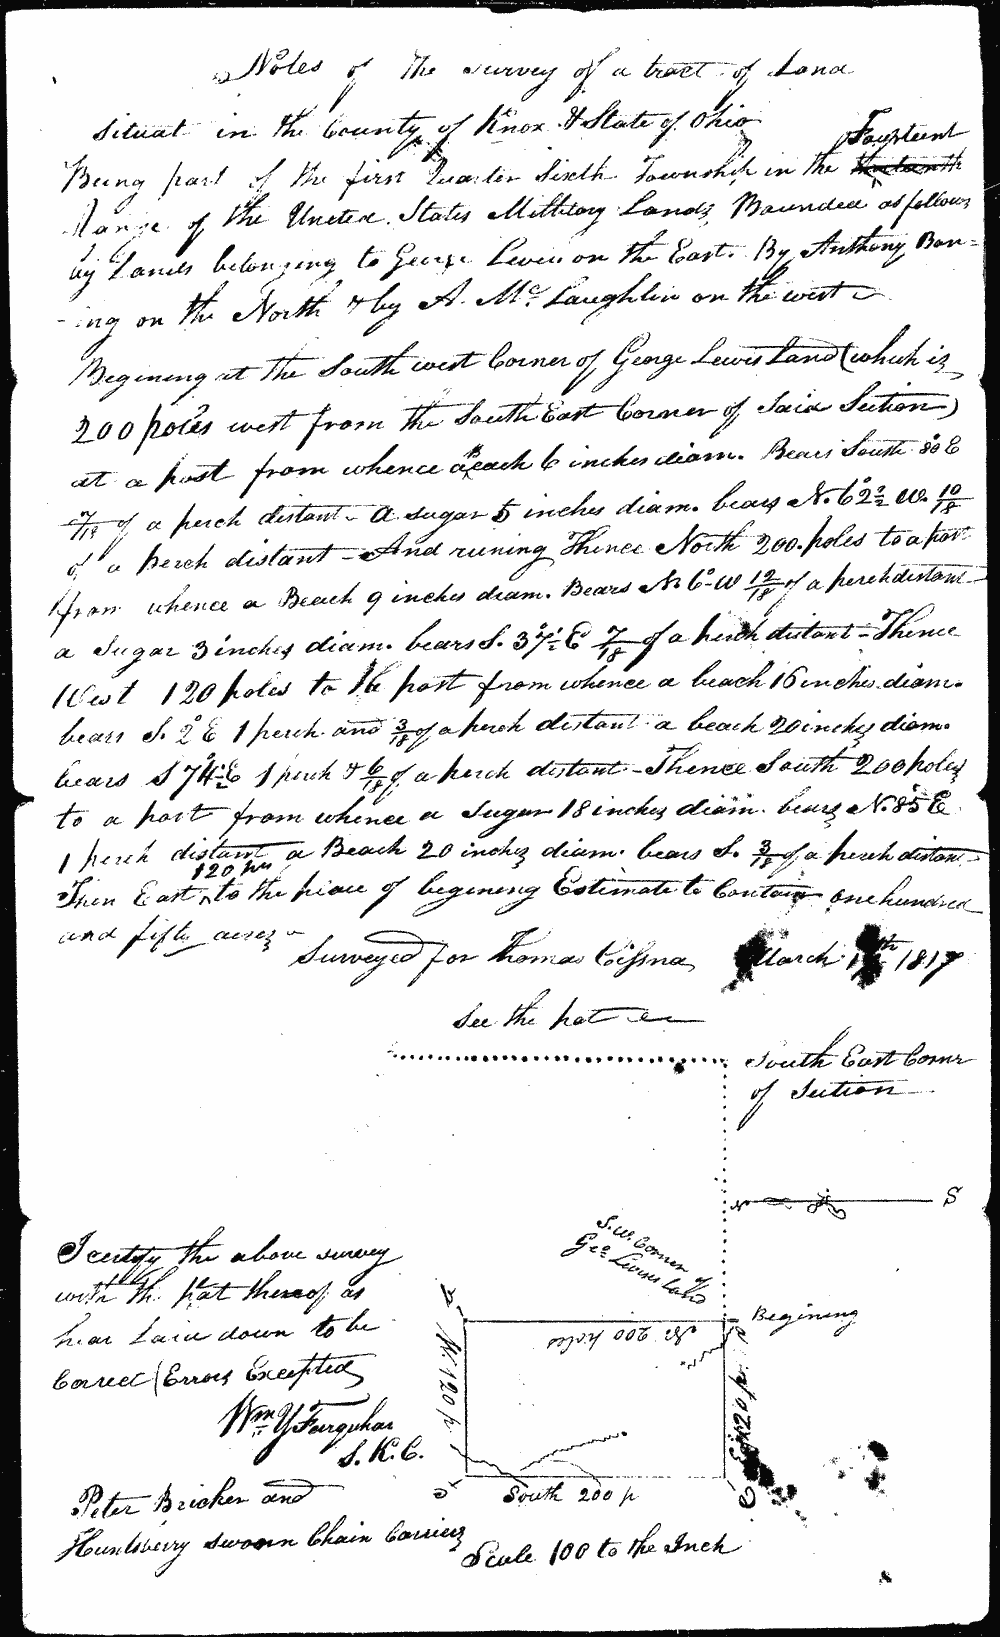 Notes of the survey of a tract of Land
Situat in the County of Knox & State of Ohio
Being part of the first Quarter Sixth Township in the Fourteent
Range of the United States Millitory Lands Bounded as follows
by Lands belonging to George Lewis on the East. By Anthony Ban=
ing on the North & by A. Mc. Laughlin on the west
Begining at the South west Corner of George Lewis Land (which is
200 poles west from the South East Corner of Said Section)
at a post from whence a Beach 6 inches diam. Bears South 80° E
7/18 of a perch distant - a sugar 5 inches diam. bears N. 62° 1/2 W. 10/18
of a perch distant - And runing Thence North 200. poles to a post
from whence a Beach 9 inches diam. Bears N 6° W 12/18 of a perch distant
a Sugar 3 inches diam. bears S. 37° 1/2 E 7/18 of a perch distant - Thence
West 120 poles to a post from whence a beach 16 inches diam.
bears S. 2° E 1 perch and 3/18 of a perch distant a beach 20 inches diam.
bears S 74° 1/2 E 1 perch & 6/18 of a perch distant - Thence South 200 poles
to a post from whence a Sugar 18 inches diam. bears N. 85° E
1 perch distant a Beach 20 inches diam. bears S. 3/18 of a perch distant
120 prs
Then East to the place of begening Estimate to Contain one hundred
and fifty acres
Surveyed for Thomas Cissna March 1817
See the plat
South East Cornr
of Section
S
S.W. Corner of
Geo Lewis Land
Begining
No 200 poles
W 120 p
East 120 p.
South 200 p
I certify the above survey
with the plat thereof as
hear Laid down to be
Correct (Errors Excepted
Wm Y Farquhar
S. K. C.
Peter Bricker and
Huntsberry sworn Chain Carriers
Scale 100 to the Inch